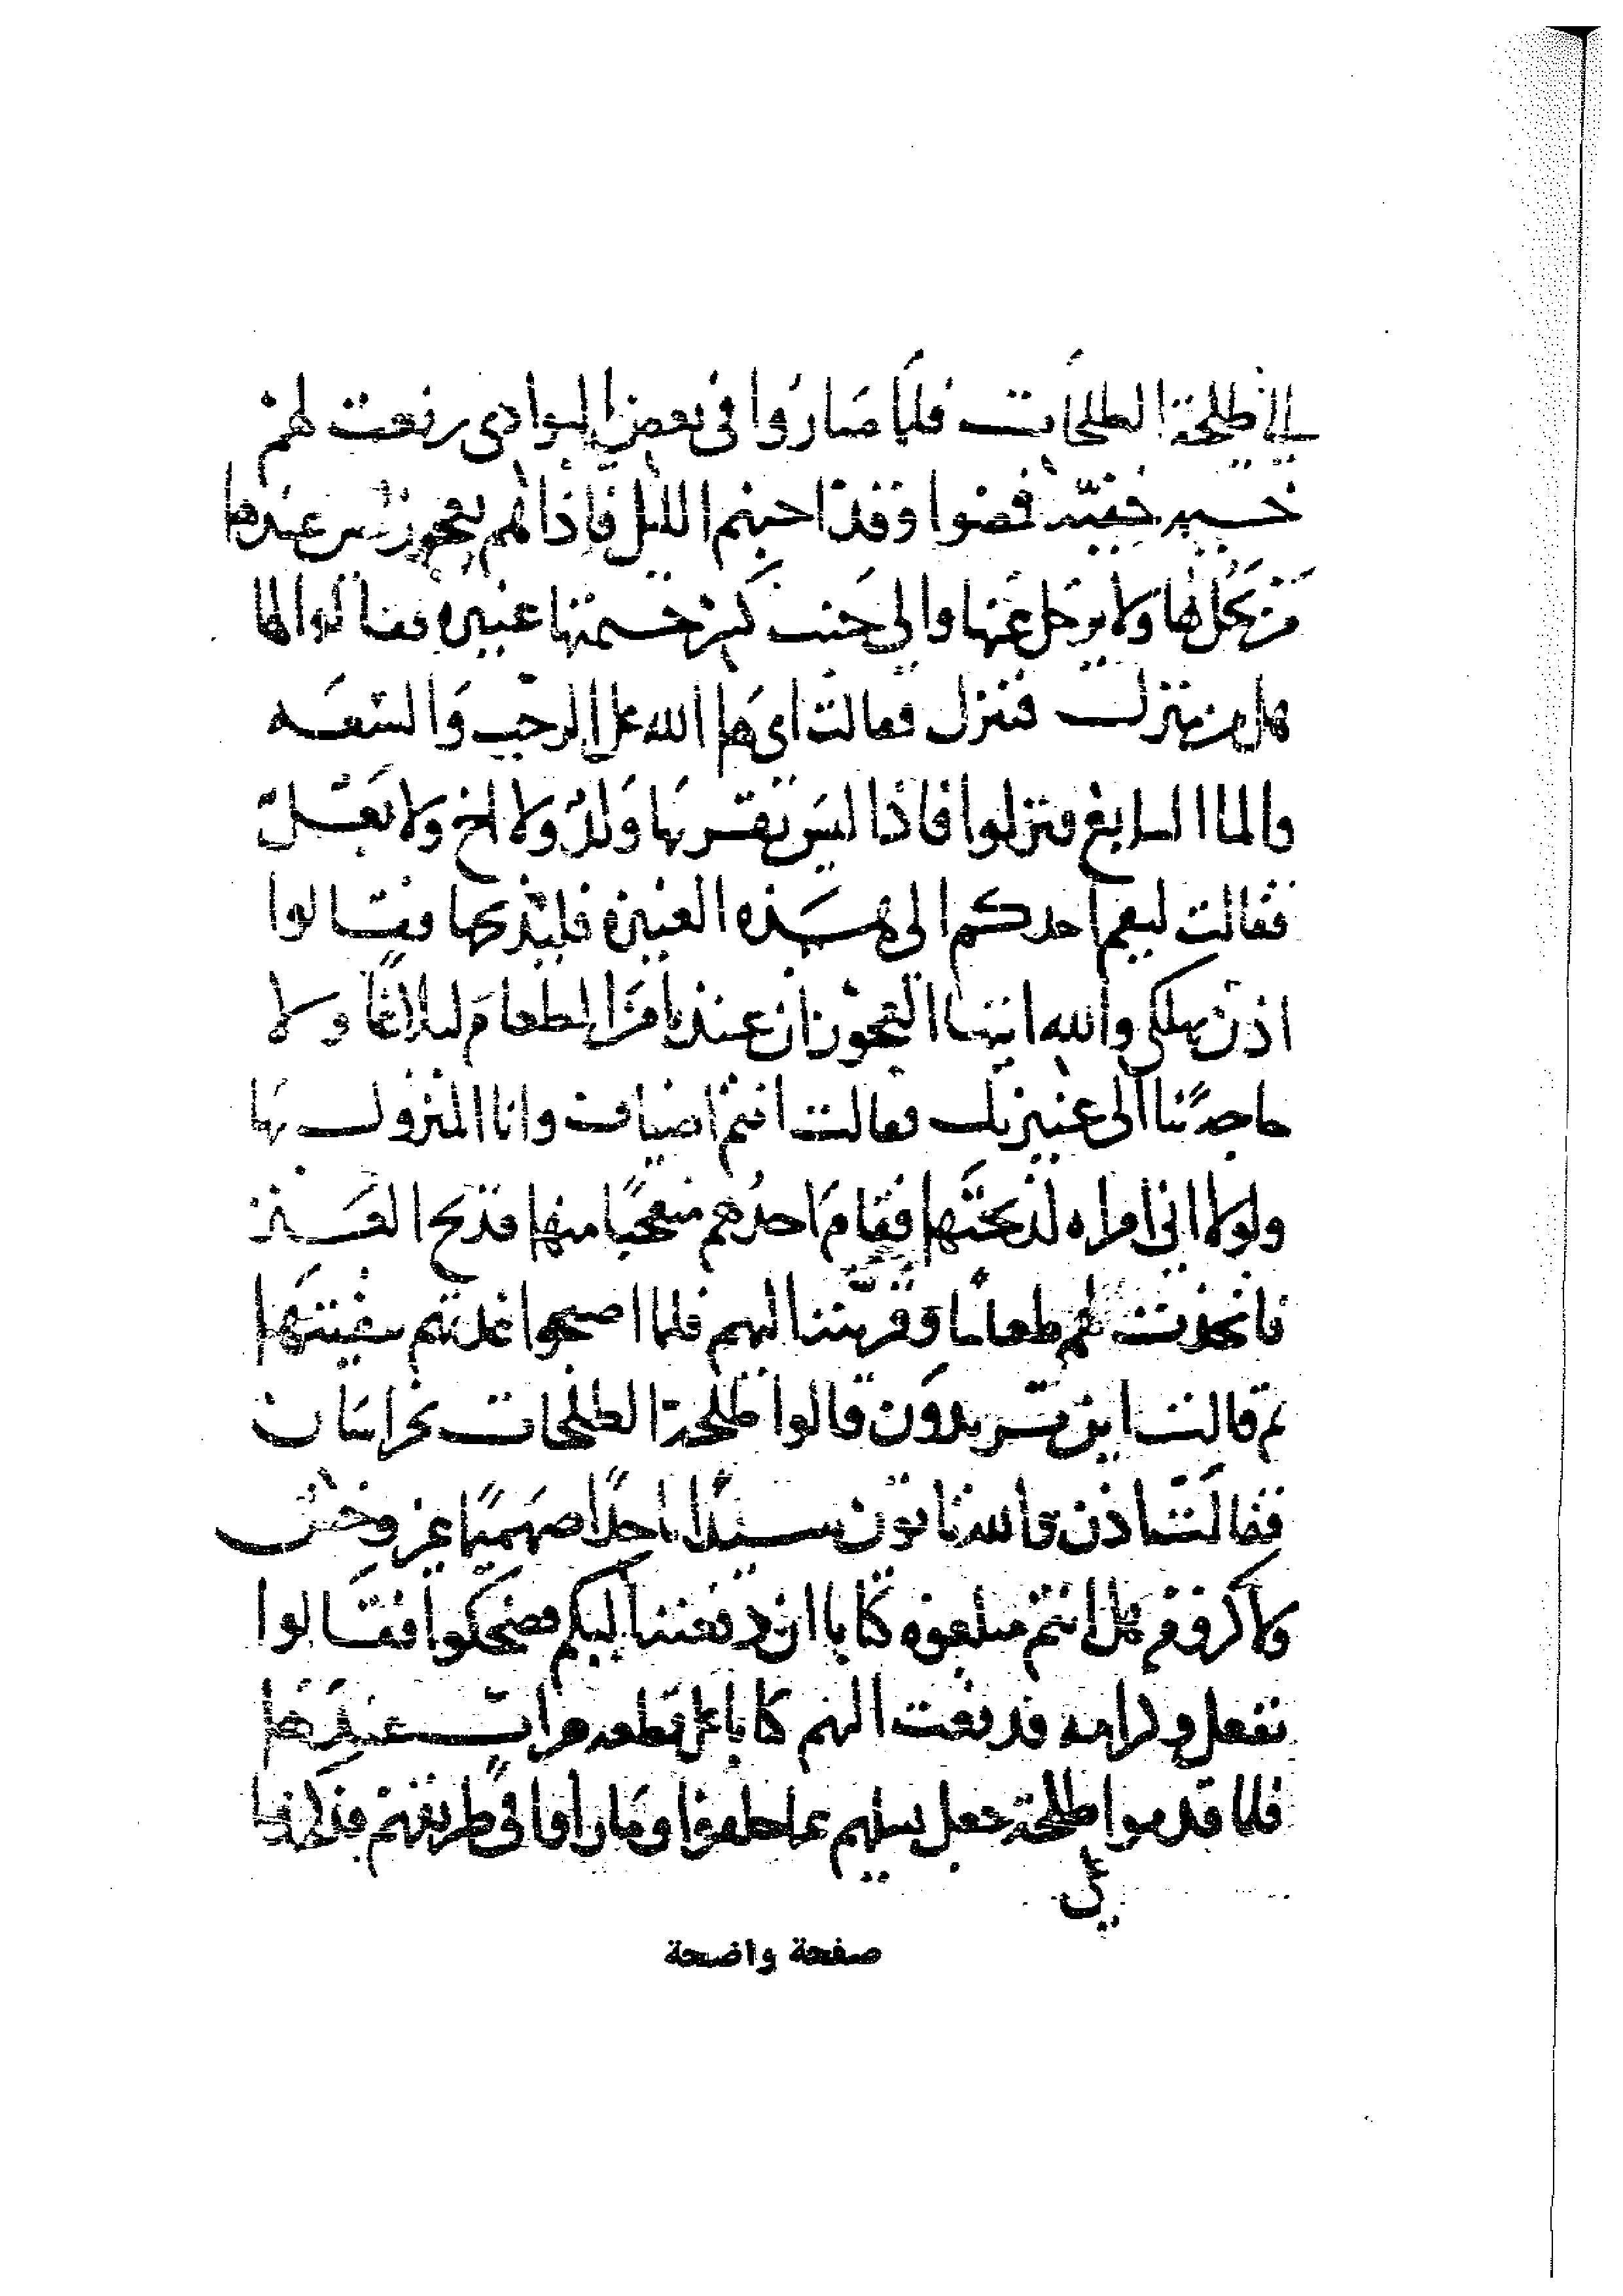 إلى طلحة الطلحات فلما صاروا في بعض البوادي رفعت لهم
خيمه خفيّه فمضوا وقد اجنهم الليل فاذا هم بعجوز ليس عندها
من يحل لها ولا يرحل عنها والى جنب كسر خيمتها عنيزه فقالوا لها
هل من منزل فننزل فقالت اي ها الله على الرحب والسعه
والماء السابغ فنزلوا فاذا ليس بقربها ولد ولا اخ ولا بعل
فقالت ليقم احدكم الى هذه العنيزه فليذبحها فقالوا
اذن تهلكي والله ايتها العجوز ان عندنا من الطعام لبلاغا ولا
حاجة بنا الى عنيزتك فقالت انتم اضياف وانا المنزول بها
ولولا اني امراه لذبحتها فقام احدهم متعجبا منها فذبح العنز
فاتخذت لهم طعاما وقربتنا اليهم فلما اصبحوا غدتهم ببقيتها
ثم قالت اين تريدون قالوا طلحة الطلحات بخراسان
فقالت اذن والله تاتون سيدا ماجدا صهميما غير وخش
ولا كزوم هل انتم مبلغوه كتابا ان دفعته اليكم فضحكوا فقالوا
نفعل وكرامه فدفعت اليهم كتابا على قطعه جراب عندها
فلما قدموا طلحة جعل يسلهم عما خلفوا وما راوا في طريقهم فذكروا
صفحة واضحة